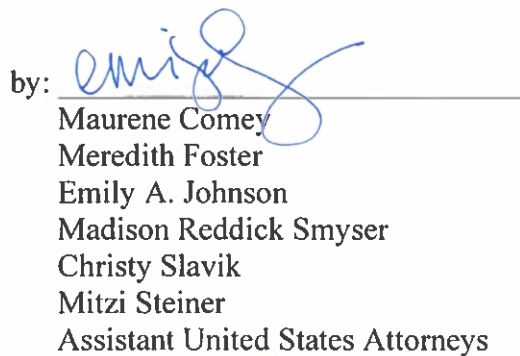 by:
Maurene Comey
Meredith Foster
Emily A. Johnson
Madison Reddick Smyser
Christy Slavik
Mitzi Steiner
Assistant United States Attorneys